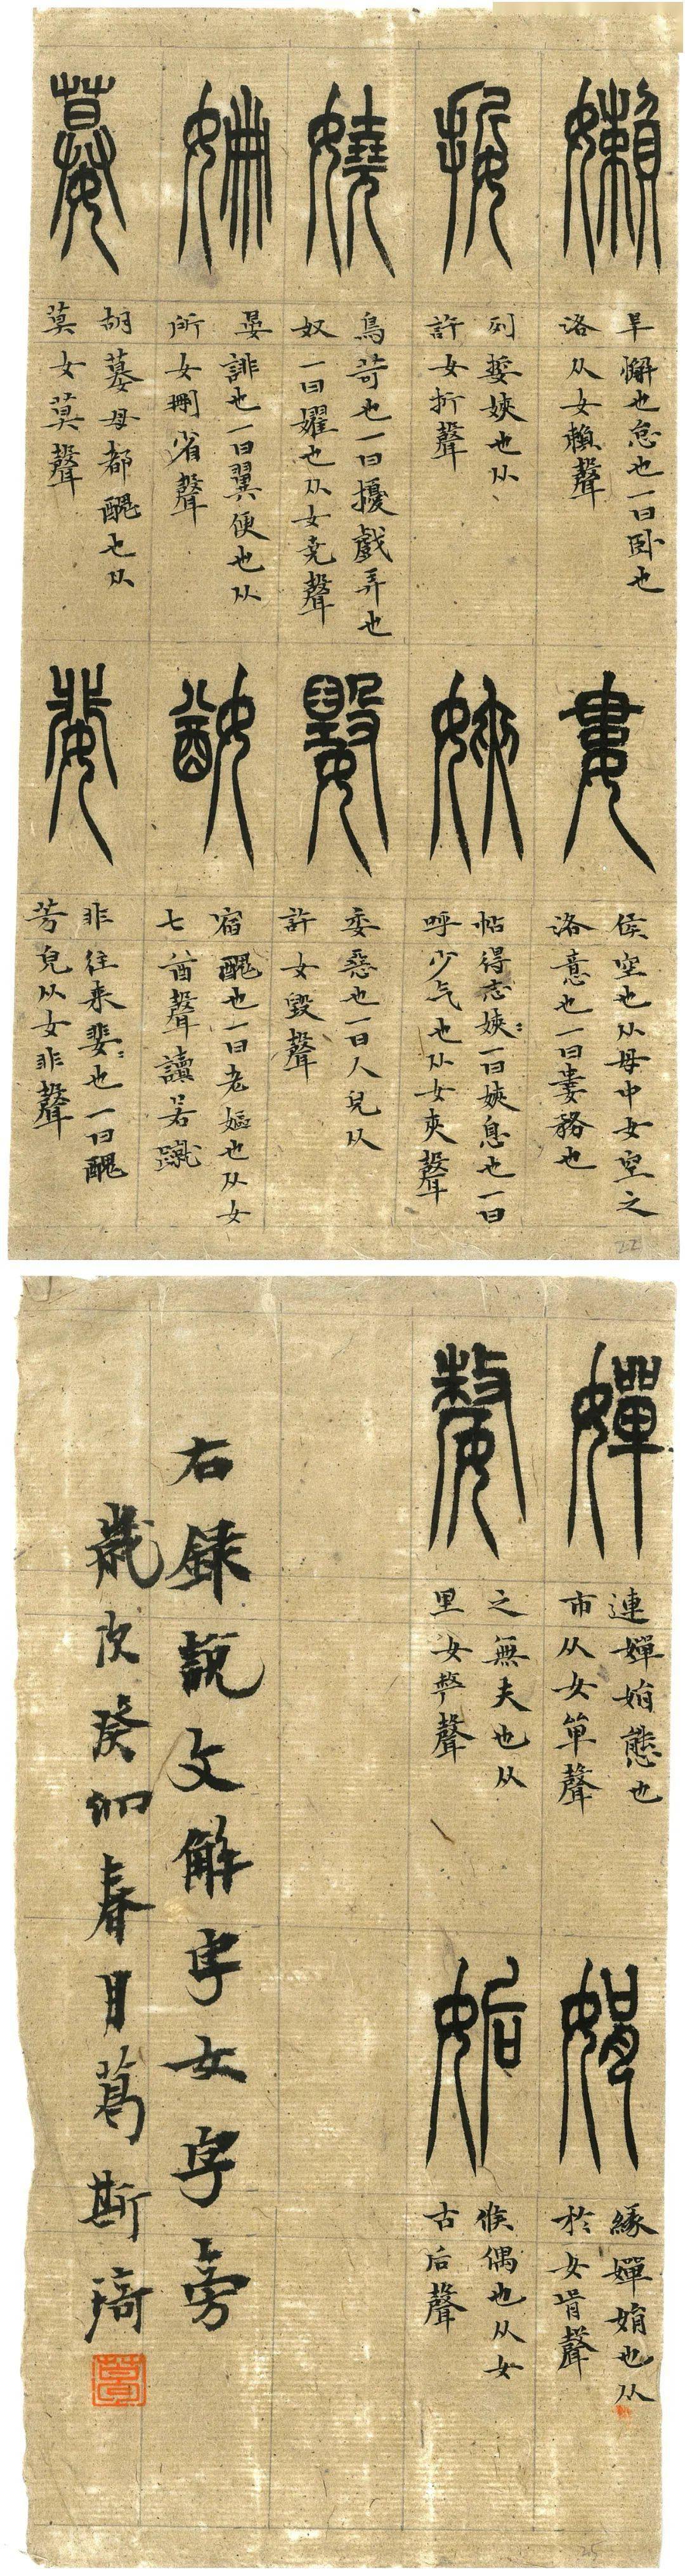 嬾
早懈也怠也一曰卧也
洛从女賴聲
婁
侯空也从母中女空之
洛意也一曰婁務也
娎
列娎㛍也从
許女折聲
㛍
帖得志㛍〻一曰㛍息也一曰
呼少气也从女夾聲
嬈
鳥苛也一曰擾戲弄也
奴一曰嬥也从女堯聲
委惡也一曰人皃从
許女毀聲
姍
晏誹也一曰翼便也从
所女刪省聲
宿醜也一曰老嫗也从女
七酋聲讀若蹴
嫫
胡嫫母都醜也从
莫女莫聲
婓
非往来婓〻也一曰醜
芳皃从女非聲
22
嬋
連嬋娟態也
市从女單聲
娟
緣嬋娟也从
於女肙聲
嫠
之無夫也从
里女𠩺聲
姤
候偶也从女
古后聲
右錄說文解字女字旁
歲次癸卯春月葛斯琦
25